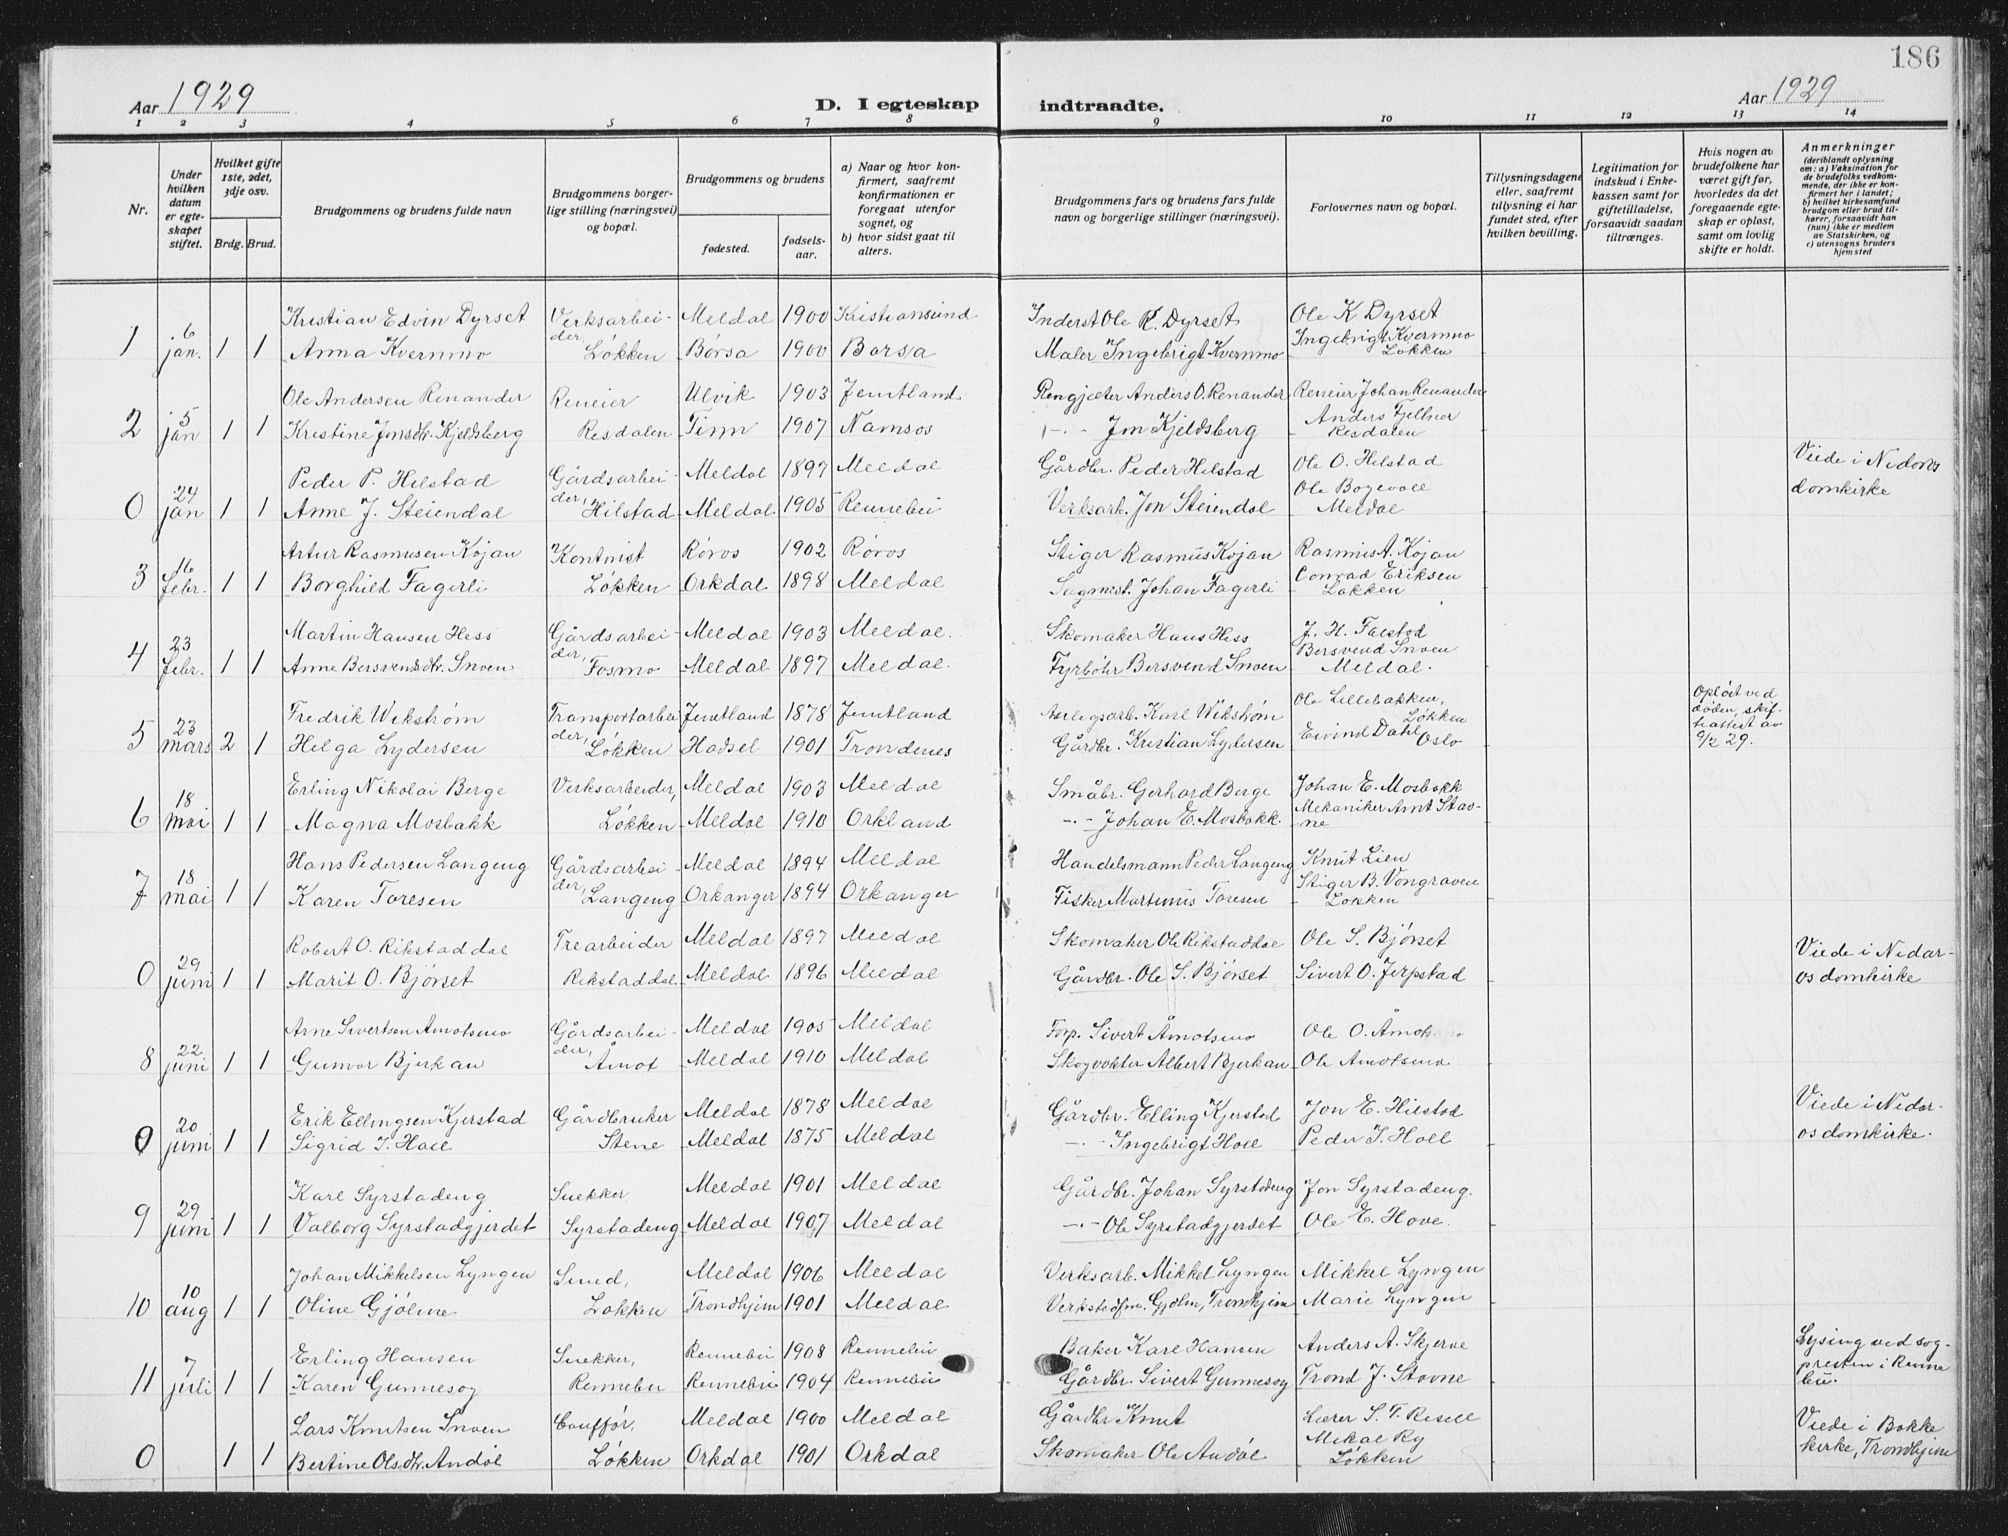 186
Aar 1929
D. I egteskap indtraadte.
Aar 1929
1 2 3 4 5 6 7 8 9 10 11 12 13 14
Nr.
Under hvilken datum er egteskapet stiftet.
Hvilket gifte 1ste, 2det, 3dje osv.
Brdg. Brud.
Brudgommens og brudens fulde navn
Brudgommens borgerlige stilling (næringsvei) og bopæl.
Brudgommens og brudens
fødested.
fødselsaar.
a) Naar og hvor konfirmert, saafremt konfirmationen er foregaat utenfor sognet, og
b) hvor sidst gaat til alters.
Brudgommens fars og brudens fars fulde navn og borgerlige stillinger (næringsvei).
Forlovernes navn og bopæl.
Tillysningsdagene eller, saafremt tillysning ei har fundet sted, efter hvilken bevilling.
Legitimation for indskud i Enkekassen samt for giftetilladelse, forsaavidt saadan tiltrænges.
Hvis nogen av brudefolkene har været gift før, hvorledes da det foregaaende egteskap er opløst, samt om lovlig skifte er holdt.
Anmerkninger
(deriblandt oplysning om: a) Vaksination for de brudefolks vedkommende, der ikke er konfirmert her i landet; b) hvilket kirkesamfund brudgom eller brud tilhører, forsaavidt han (hun) ikke er medlem av Statskirken, og c) utensogns bruders hjemsted
Kristian Edvin Dyrset Verksarbeider, Meldal 1900 Kristiansund Inderst Ole K. Dyrset Ole K Dyrset
1 6 jan. 1 1 Anna Kvernmo Løkken Børsa 1900 Børsa Maler Ingebrigt Kvernmo Ingebrigt Kvernmo Løkken
Ole Andersen Renander Reneier Ulvik 1903 Jemtland Rengjæter Anders O. Renander Reneier Johan Renander
2 5 jan 1 1 Kristine Jonsdtr. Kjeldsberg Resdalen Finn 1907 Namsos -"- Jon Kjeldsberg Anders Fjellner Resdalen
Peder P. Hilstad Gårdsarbeider, Meldal 1897 Meldal Gårdbr. Peder Hilstad Ole O. Hilstad Viede i Nidaros
0 24 jan 1 1 Anne J. Steiendal Hilstad Meldal 1905 Rennebu Verksarb. Jon Steiendal Ole Bogevoll Meldal domkirke
Artur Rasmusen Kojan Kontorist Røros 1902 Røros Stiger Rasmus Kojan Rasmus A. Kojan
3 16 febr. 1 1 Borghild Fagerli Løkken Orkdal 1898 Meldal Sagmest. Johan Fagerli Conrad Eriksen Løkken
Martin Hansen Hess Gårdsarbeider, Meldal 1903 Meldal. Skomaker Hans Hess J. H. Faestad
4 23 febr. 1 1 Anne Bersvendsdtr. Snoen Fosmo Meldal 1897 Meldal. Fyrbøter Bersvend Snoen Bersvend Snoen Meldal.
Fredrik Wikstrøm Transportarbeider, Jemtland 1878 Jemtland Anlegsarb. Karl Wikstrøm Ole Lillebakken, Løkken Opløst ved døden, skifteattest av
5 23 mars 2 1 Helga Lydersen Løkken Hadsel 1901 Trondenes Gårdbr. Kristian Lydersen Eivind Dahl Oslo 9/2 29.
Erling Nikolai Berge Verksarbeider, Meldal 1903 Meldal Småbr. Gerhard Berge Johan E. Mosbakk
6 18 mai 1 1 Magna Mosbakk Løkken Meldal 1910 Orkland -"- Johan E. Mosbakk. Mekaniker Arnt Stavne
Hans Pedersen Langeng Gårdsarbeider, Meldal 1894 Meldal Handelsmann Peder Langeng Knut Lien
7 18 mai 1 1 Karen Toresen Langeng Orkanger 1894 Orkanger Fisker Martinus Toresen Stiger B. Vongraven Løkken
Robert O. Rikstaddal Trearbeider Meldal 1897 Meldal Skomaker Ole Rikstaddal Ole S. Bjørset Viede i Nidar-
0 29 juni 1 1 Marit O. Bjørset Rikstaddal. Meldal 1896 Meldal Gårdbr. Ole S. Bjørset Sivert O. Jerpstad os domkirke
Arne Sivertsen Åmotsmo Gårdsarbeider, Meldal 1905 Meldal Forp. Sivert Åmotsmo Ole O. Åmotsmo
8 22 juni 1 1 Gunvor Bjerkan Åmot Meldal 1910 Meldal Skogvokter Albert Bjerkan Ole Åmotsmo
Erik Ellingsen Kjerstad Gårdbruker Meldal 1878 Meldal Gårdbr. Elling Kjerstad Jon E. Hilstad Viede i Nidar-
0 20 juni 1 1 Sigrid I. Holl Stene Meldal 1875 Meldal -"- Ingebrigt Holl Peder I. Holl os domkirke.
Karl Syrstadeng Snekker, Meldal 1901 Meldal Gårdbr. Johan Syrstadeng Jon Syrstadeng.
9 29 juni 1 1 Valborg Syrstadgjerdet Syrstadeng Meldal 1907 Meldal -"- Ole Syrstadgjerdet Ole E. Hove.
Johan Mikkelsen Lyngen Smed, Meldal 1906 Meldal Verksarb. Mikkel Lyngen Mikkel Lyngen
10 10 aug 1 1 Oline Gjølme Løkken Trondhjem 1901 Meldal Verkstedfm. Gjølm, Trondhjem Marie Lyngen
Erling Hansen Snekker, Rennebu 1908 Rennebu Baker Karl Hansen Anders A. Skjerve Lysing ved sog-
11 7 juli 1 1 Karen Gunnesog Rennebu Rennebu 1904 Rennebu Gårdbr. Sivert Gunnesog Trond J. Stavne presten i Rennebu.
Lars Knutsen Snoen Couffør, Meldal 1900 Meldal Gårdbr Knut Lærer S. T. Resell Viede i Bakke
0 1 1 Bertine Olsdtr. Andøl Løkken Orkdal 1901 Orkdal Skomaker Ole Andøl Mekal Ry Løkken kirke, Trondhjem